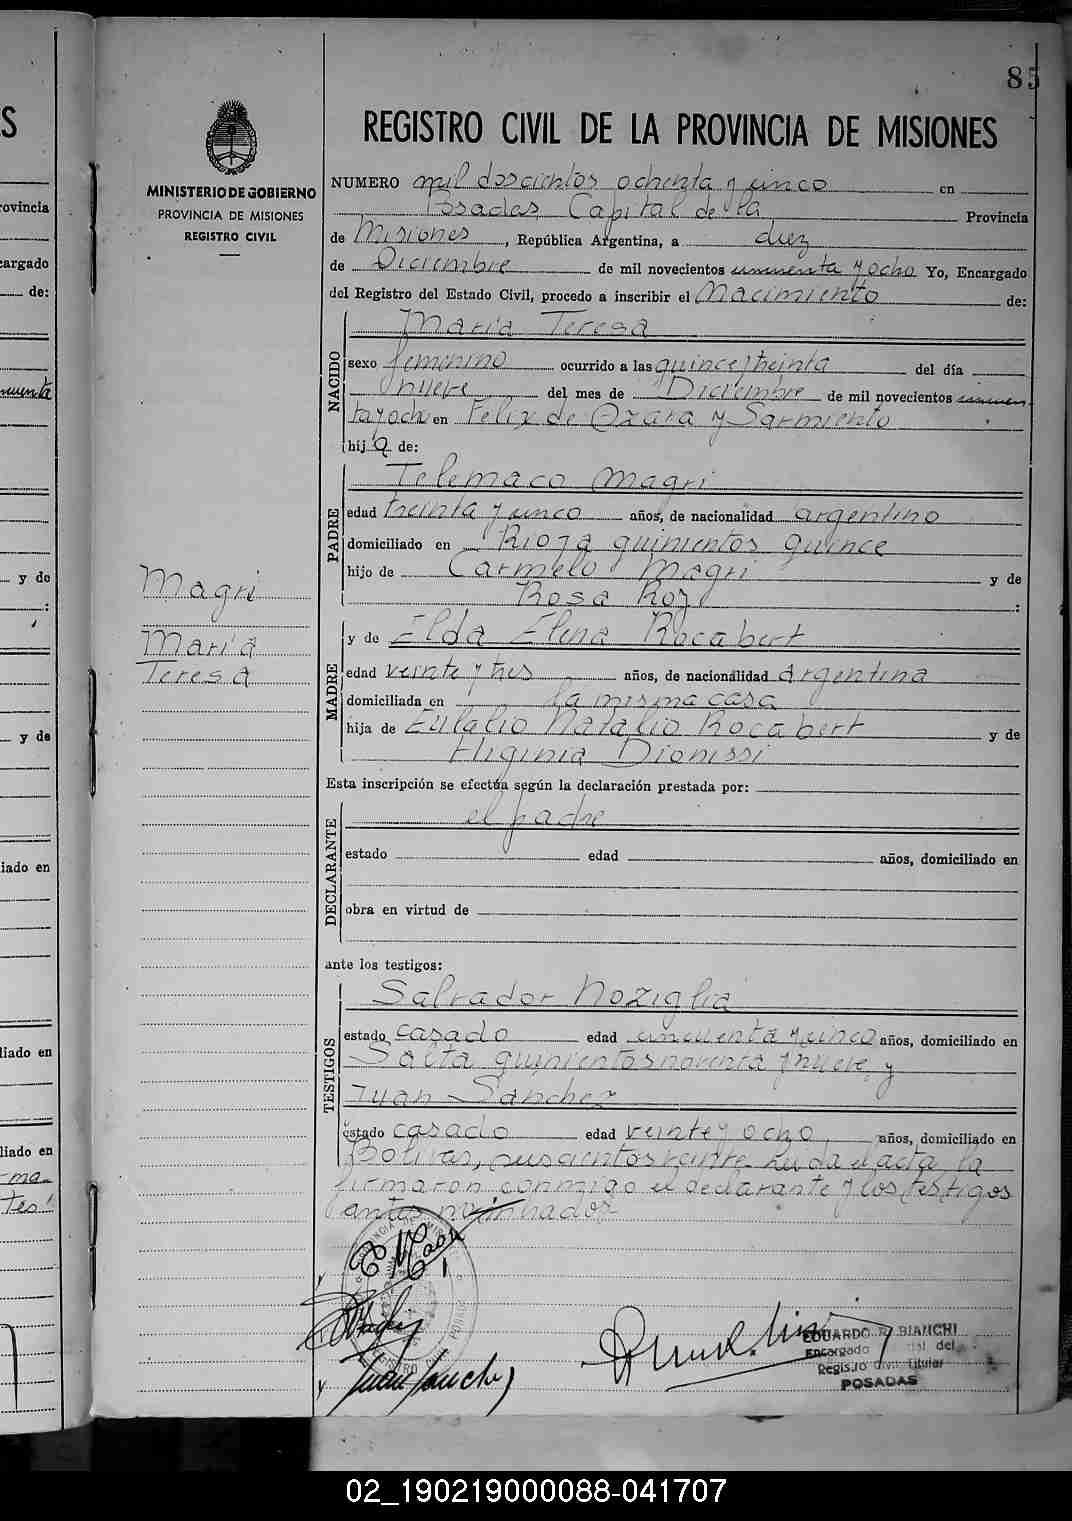 85
REGISTRO CIVIL DE LA PROVINCIA DE MISIONES
MINISTERIO DE GOBIERNO
PROVINCIA DE MISIONES
REGISTRO CIVIL
NUMERO mil doscientos ochenta y cinco en
Posadas Capital de la Provincia
de Misiones, República Argentina, a diez
de Diciembre de mil novecientos cincuenta y ocho Yo, Encargado
del Registro del Estado Civil, procedo a inscribir el Nacimiento de:
NACIDO
María Teresa
sexo femenino ocurrido a las quince y treinta del día
nueve del mes de Diciembre de mil novecientos cincuen-
ta y ocho en Felix de Azara y Sarmiento
hija de:
PADRE
Telemaco Magri
edad treinta y cinco años, de nacionalidad argentino
domiciliado en Rioja quinientos quince
hijo de Carmelo Magri y de
Rosa Rozi :
Magri
María
Teresa
MADRE
y de Elda Elena Rocabert
edad veinte y tres años, de nacionalidad argentina
domiciliada en la misma casa
hija de Eulalio Natalio Rocabert y de
Higinia Dionissi
Esta inscripción se efectúa según la declaración prestada por:
DECLARANTE
el padre
estado edad años, domiciliado en
obra en virtud de
ante los testigos:
TESTIGOS
Salvador Noziglia
estado casado edad cincuenta y cinco años, domiciliado en
Salta quinientos noventa y nueve y
Juan Sanchez
estado casado edad veinte y ocho años, domiciliado en
Bolivar, veinte. Leida el acta, la
firmaron conmigo el declarante y los testigos
antes
EDUARDO R. BIANCHI
Encargado del
Registro Civil Titular
POSADAS
S
rovincia
cargado
de:
y de
:
y de
liado en
liado en
liado en
02_190219000088-041707